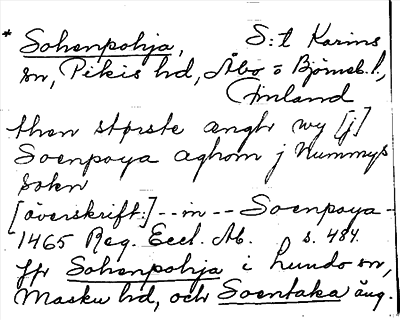 * Sohenpohja, S:t Karins
sn, Pikis hd, Åbo o Björneb. l.,
Finland
then største ænghr wy [j]
Soenpoya aghom j Nummys
sokn
[överskrift:] -- in -- Soenpoya -
1465 Reg. Eccl. Ab. s. 484.
Jfr Sohenpohja i Lundo sn,
Masku hd, och Soentaka äng.